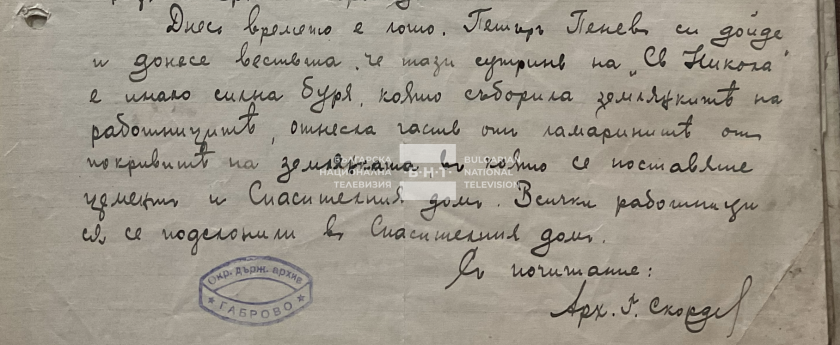 Днесъ времето е лошо. Петъръ Пеневъ си дойде
и донесе вестьта, че тази сутринь на „Св. Никола"
е имало силна буря, която съборила землянкитѣ на
работницитѣ, отнесла часть отъ ламаринитѣ отъ
покривитѣ на землянката, въ която се поставяше
цементъ и Спасителния домъ. Всички работници
ся се подслонили въ Спасителния домъ.
Съ почитание:
Арх. Г.
БЪЛГАРСКА НАЦИОНАЛНА ТЕЛЕВИЗИЯ
БНТ
BULGARIAN NATIONAL TELEVISION
Окр. държ. архив
★ ГАБРОВО ★